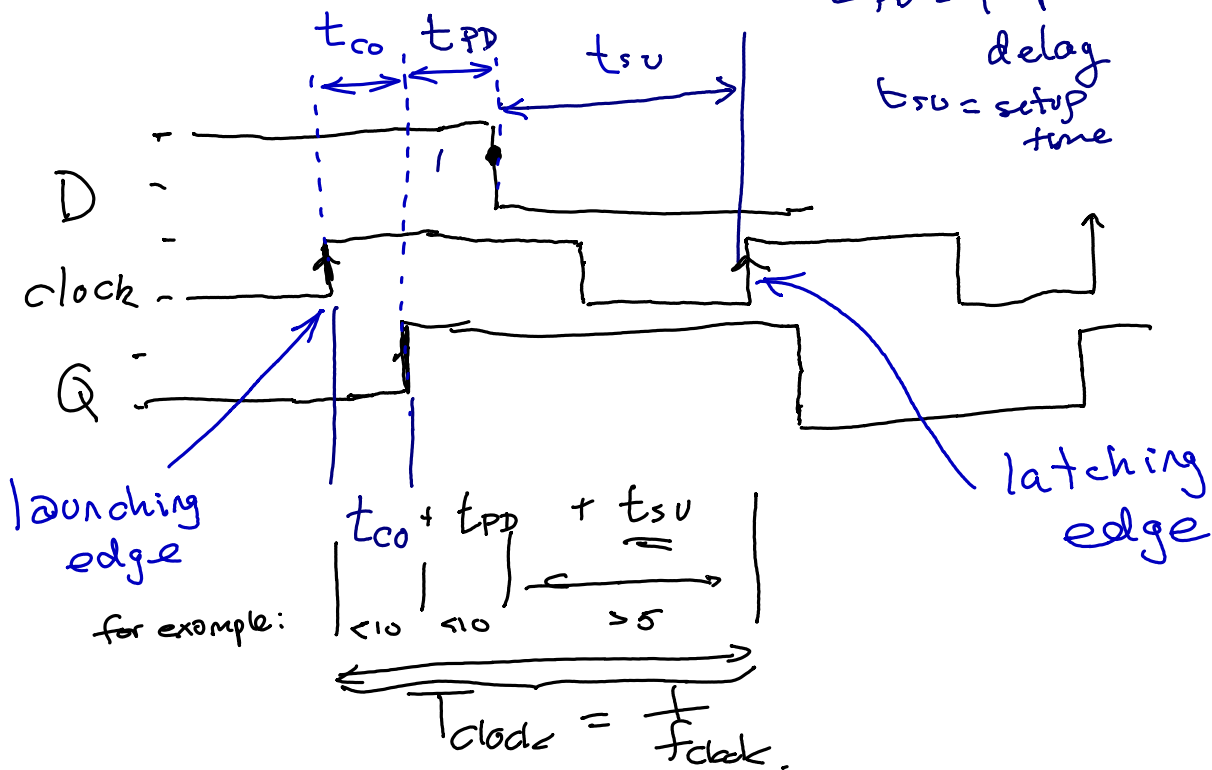 t_co t_PD t_su
delay
t_su = setup
time
D
clock
Q
launching
edge
latching
edge
t_co + t_PD + t_su
for example: <10 <10 >5
T_clock = 1/f_clock.